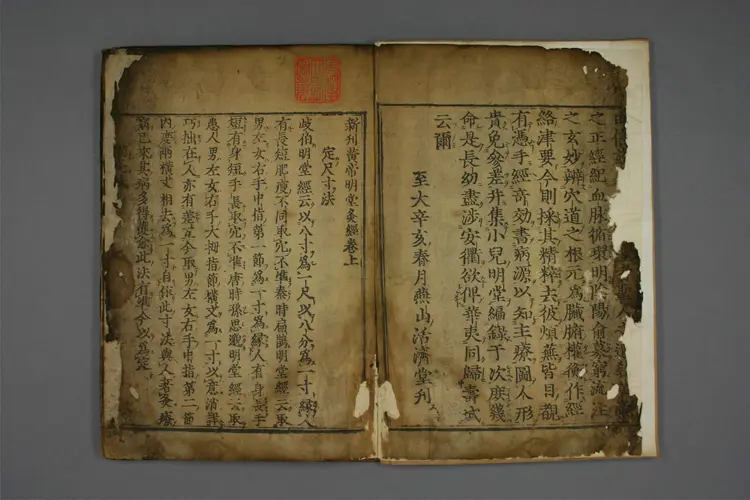 之正經紀血脉循環明陰陽俞募窮流注
之玄妙辨穴道之根元為臟腑權衡作經
絡津要今則採其精粹去彼煩蕪皆目覩
有憑手經奇効書病源以知主療圖人形
貴免參差并集小兒明堂編錄于次庶幾
命是長幼盡涉安衢欲俾華夷同歸壽域
云爾
至大辛亥春月燕山活濟堂刊
新刊黄帝明堂灸經卷上
定尺寸法
岐伯明堂經云以八寸爲一尺以八分爲一寸緣人
有長短肥瘦不同取穴不準秦時扁鵲明堂經云取
男左女右手中指第一節爲一寸爲緣人有身長手
短有身短手長取穴不準唐時孫思邈明堂經云取
患人男左女右手大拇指節橫文爲一寸以意消詳
巧拙在人亦有差互今取男左女右手中指第二節
内度兩橫文相去爲一寸自依此寸法與人著灸療
病已來其病多得獲愈此法有準今以爲定